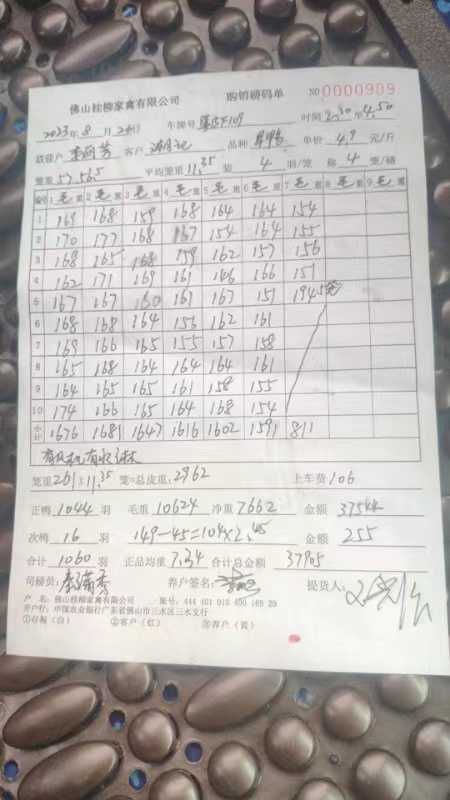 佛山桂柳家禽有限公司 购销磅码单 NO 0000909
2023年8月26日 车牌号 时间2:30-4:50
客户 品种 单价4.9元/斤
笼重 57 56.5 平均笼重11.35 装4羽/笼 称4笼/磅
编号 1毛重 2毛重 3毛重 4毛重 5毛重 6毛重 7毛重 8毛重 9毛重
1 169 168 159 168 164 164 154
2 170 177 168 167 154 164 155
3 168 165 168 159 162 157 156
4 162 171 169 161 146 166 151
5 167 167 160 161 167 151 194
6 168 168 164 156 162 161
7 169 166 165 155 157 158
8 165 168 164 164 164 161
9 164 165 165 161 158 155
10 174 166 165 164 168 154
小计 1676 1681 1647 1616 1602 1591 811
笼重261×11.35 笼=总皮重:2962 上车费106
正鸭1044羽 毛重10624 净重7662 金额
次鸭16羽 149-45=104×2.45 金额255
合计1060羽 正品均重7.34 合计总金额37905
司磅员: 养户签名: 提货人:
户 名:佛山桂柳家禽有限公司
开户行:中国农业银行广东省佛山市三水区三水支行
①存根(白) ②客户(红) ③养户(黄)